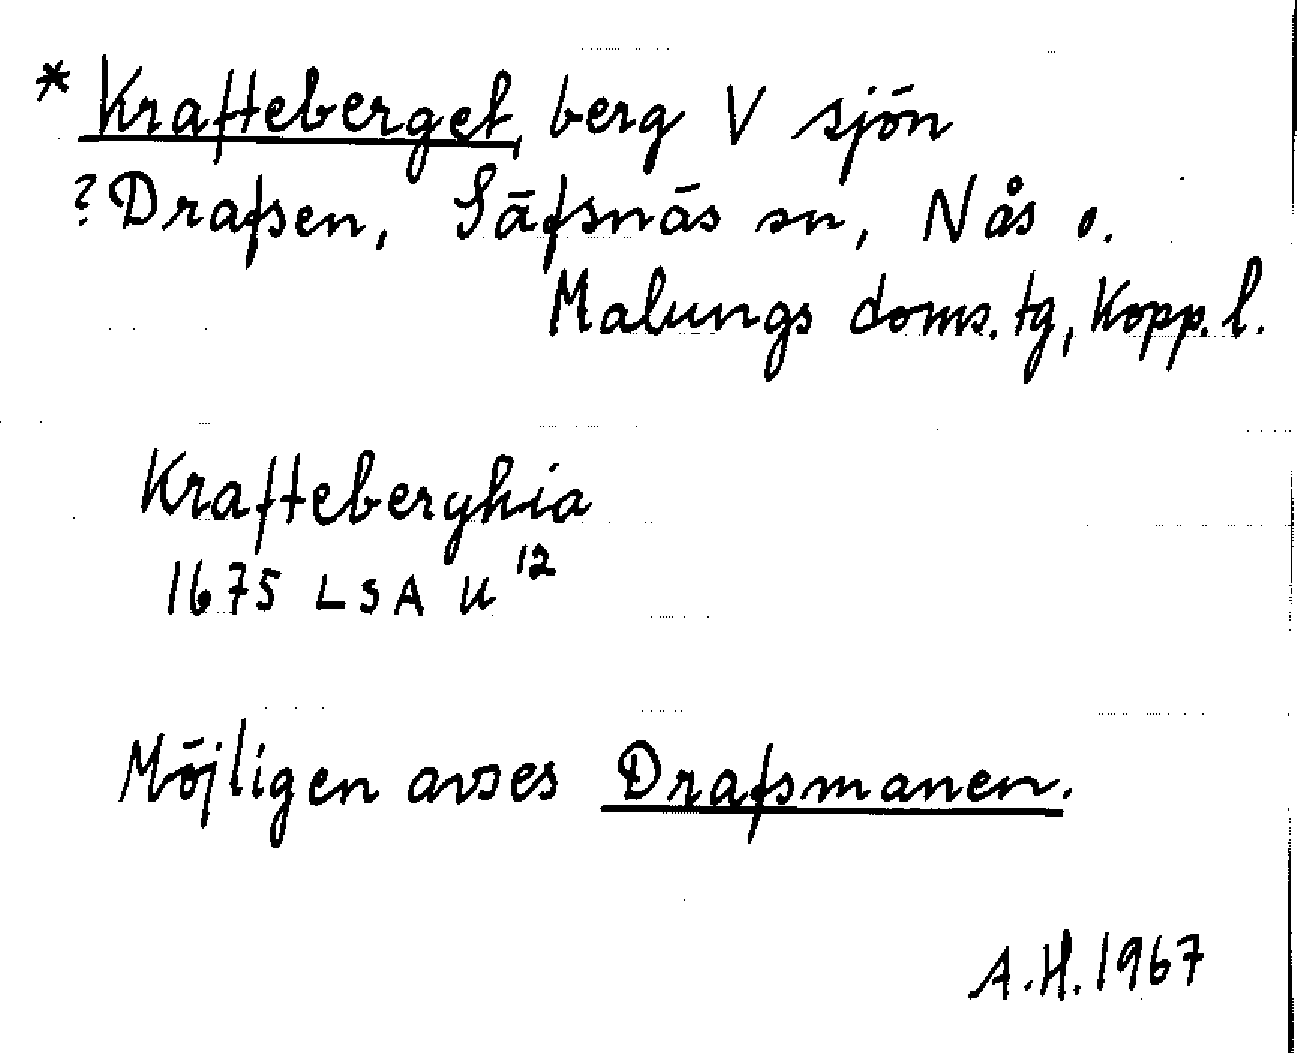 * Krafteberget, berg V sjön
? Drafsen, Säfsnäs sn, Nås o.
Malungs doms. tg, Kopp. l.
Krafteberghia
1675 LSA U 12
Möjligen avses Drafsmanen.
A.H. 1967